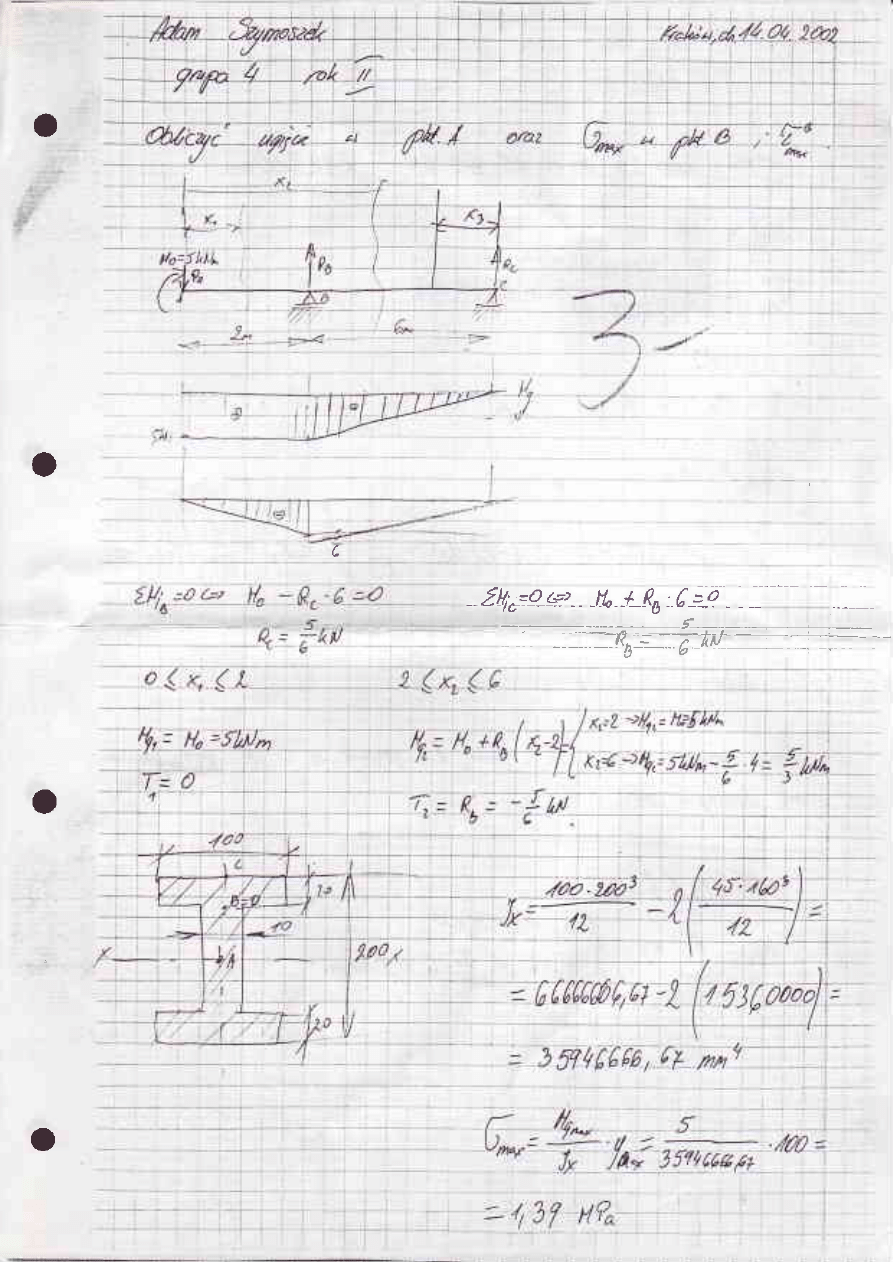 Adam Szymoszek
Kraków, dn 14.04.2002
grupa 4 rok II
Obliczyć ugięcie w pkt. A oraz σmax w pkt B i τmax^B.
x2
x1
x3
M0=5kNm
RB
RC
B
C
2m
6m
3-
⊖
Mg
⊖
6
ΣMiB=0 ⇔ M0 - RC·6=0
ΣMiC=0 ⇔ M0 + RB·6=0
RC = 5/6 kN
RB = -5/6 kN
0 ≤ x1 ≤ 2
2 ≤ x2 ≤ 6
Mg1 = M0 = 5kNm
Mg2 = M0 + RB (x2-2) =
x2=2 → Mg2 = M0=5kNm
x2=6 → Mg2 = 5kNm - 5/6 · 4 = 5/3 kNm
T1 = 0
T2 = RB = -5/6 kN.
100
C
20
B=D
10
A
x
200
x
20
Jx = 100·200³/12 - 2(45·160³/12) =
= 66666666,67 - 2 (15360000) =
= 35946666,67 mm⁴
σmax = Mgmax/Jx · ymax = 5/35946666,67 · 100 =
= 1,39 MPa